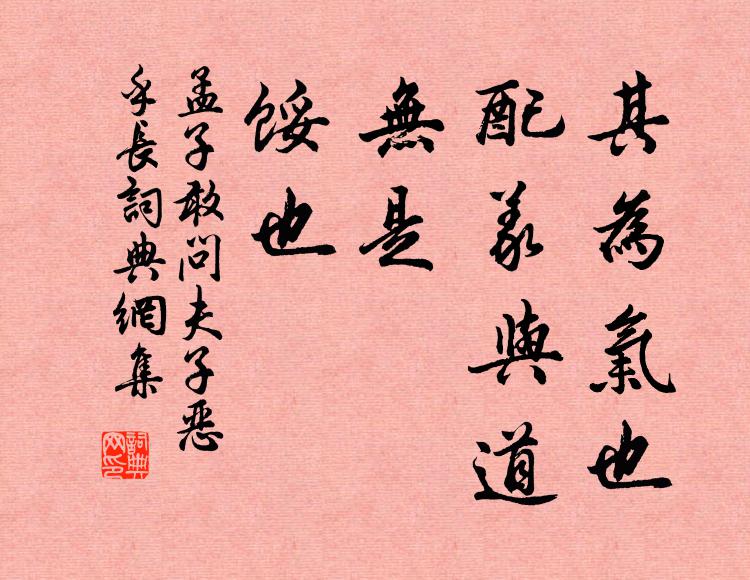 其為氣也
配義與道
無是
餒也
孟子敢問夫子惡
乎長詞典網集
詞典網印